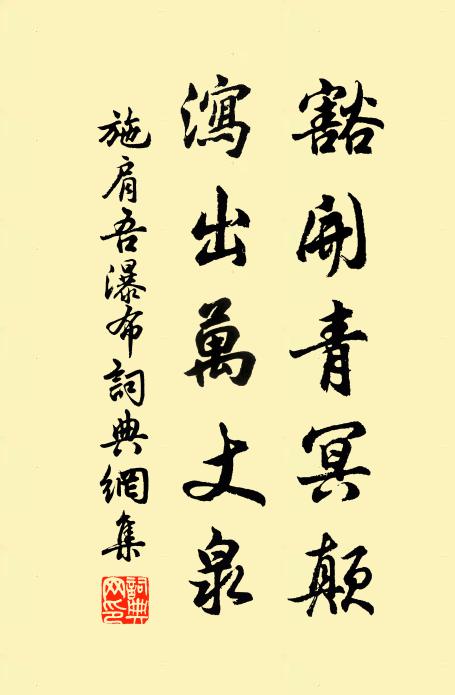 豁開青冥顛
瀉出萬丈泉
施肩吾瀑布詞典網集
詞典网印